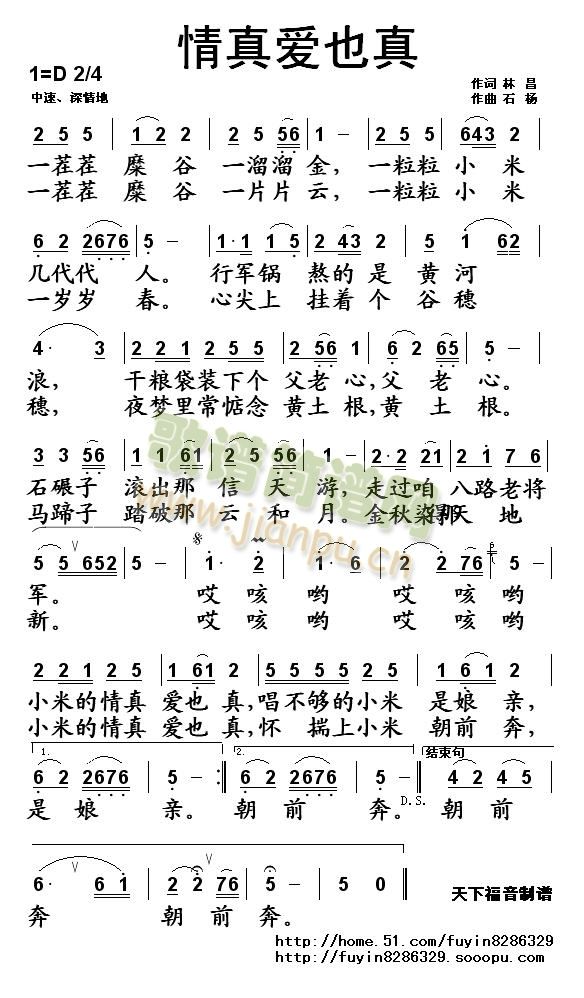 情真爱也真
1=D 2/4
中速、深情地
作词 林 昌
作曲 石 杨
2 5 5 1 2 2 2 5 56 2 5 5 643 2
一茬茬 糜 谷 一溜溜 金, 一粒粒 小 米
一茬茬 糜 谷 一片片 云, 一粒粒 小 米
6 2 2676 5 – 1·1 1 5 2 43 2 5 1 62
几代代 人。 行军锅 熬的 是 黄 河
一岁岁 春。 心尖上 挂着 个 谷 穗
4· 3 2 2 1 2 5 5 2 56 1 6 2 65 5 –
浪, 干粮袋装下个 父老 心,父 老 心。
穗, 夜梦里常惦念 黄土 根,黄 土 根。
3 3 56 1 1 61 2 5 56 1 – 2·2 21 2 1 7 6
石碾子 滚出那 信 天 游, 走过咱 八路老将
马蹄子 踏破那 云 和 月。金秋染那 天 地
5 5 652 5 – 1· 2 1· 6 2 2 76 5 –
军。 哎 咳 哟 哎 咳 哟
新。 哎 咳 哟 哎 咳 哟
2 2 1 2 5 1 61 2 5 5 5 5 2 5 1 6 1 2
小米的情真 爱也 真,唱不够的小米 是娘 亲,
小米的情真 爱也 真,怀 揣上小米 朝前 奔,
1. 2. 结束句
6 2 2676 5 – :6 2 2676 5 – 4 2 4 5
是 娘 亲。 朝 前 奔。D.S.朝 前
6· 6 1 2 2 76 6 – 5 0
奔 朝 前 奔。
天下福音制谱
http://home.51.com/fuyin8286329
http://fuyin8286329.sooopu.com
歌谱简谱网
www.jianpu.cn